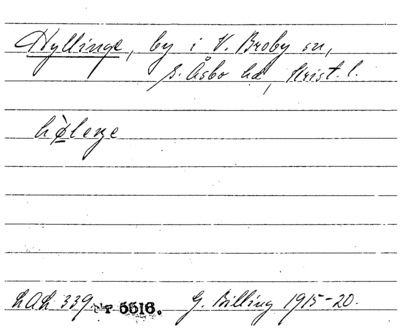 Hyllinge, by i V. Broby sn,
S. Åsbo hd, Krist. l.
hø̀leŋe
LAL 339 Nr 5516. G. Billing 1915-20.